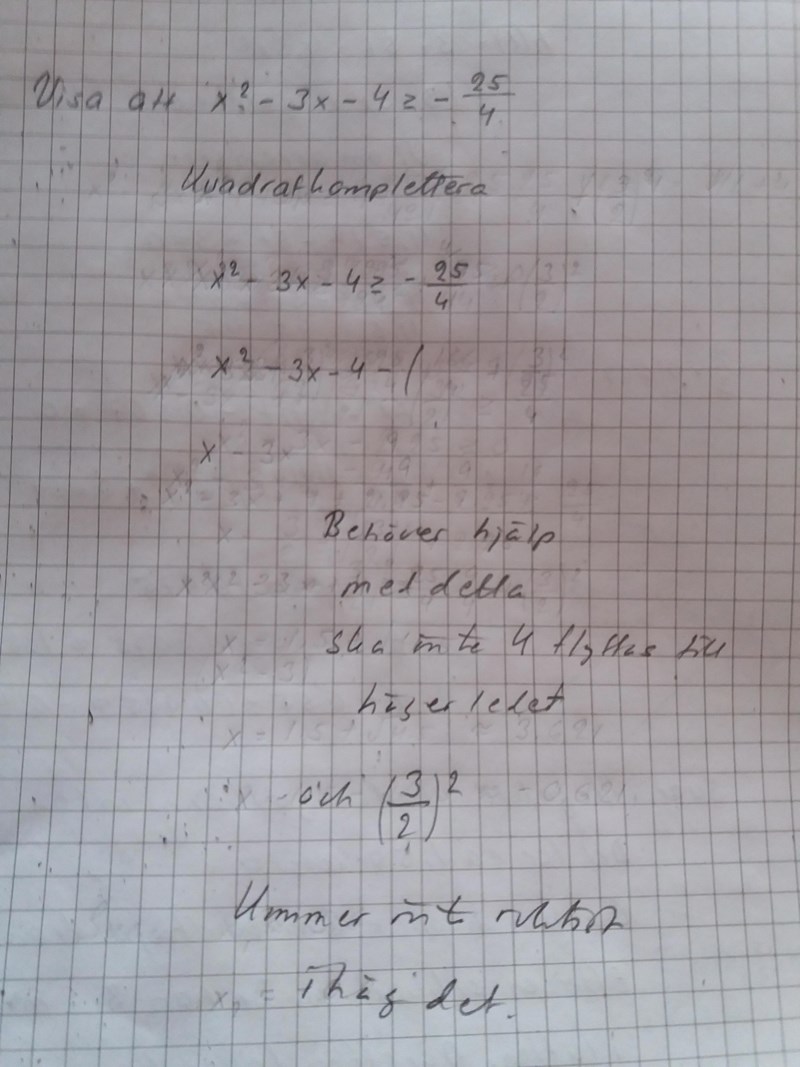 Visa att x² - 3x - 4 ≥ - 25/4
Kvadratkomplettera
x² - 3x - 4 ≥ - 25/4
x² - 3x - 4 - (
x - 3x
Behöver hjälp
med detta
ska inte 4 flyttas till
höger ledet
och (3/2)²
Kommer inte riktigt
ihåg det.